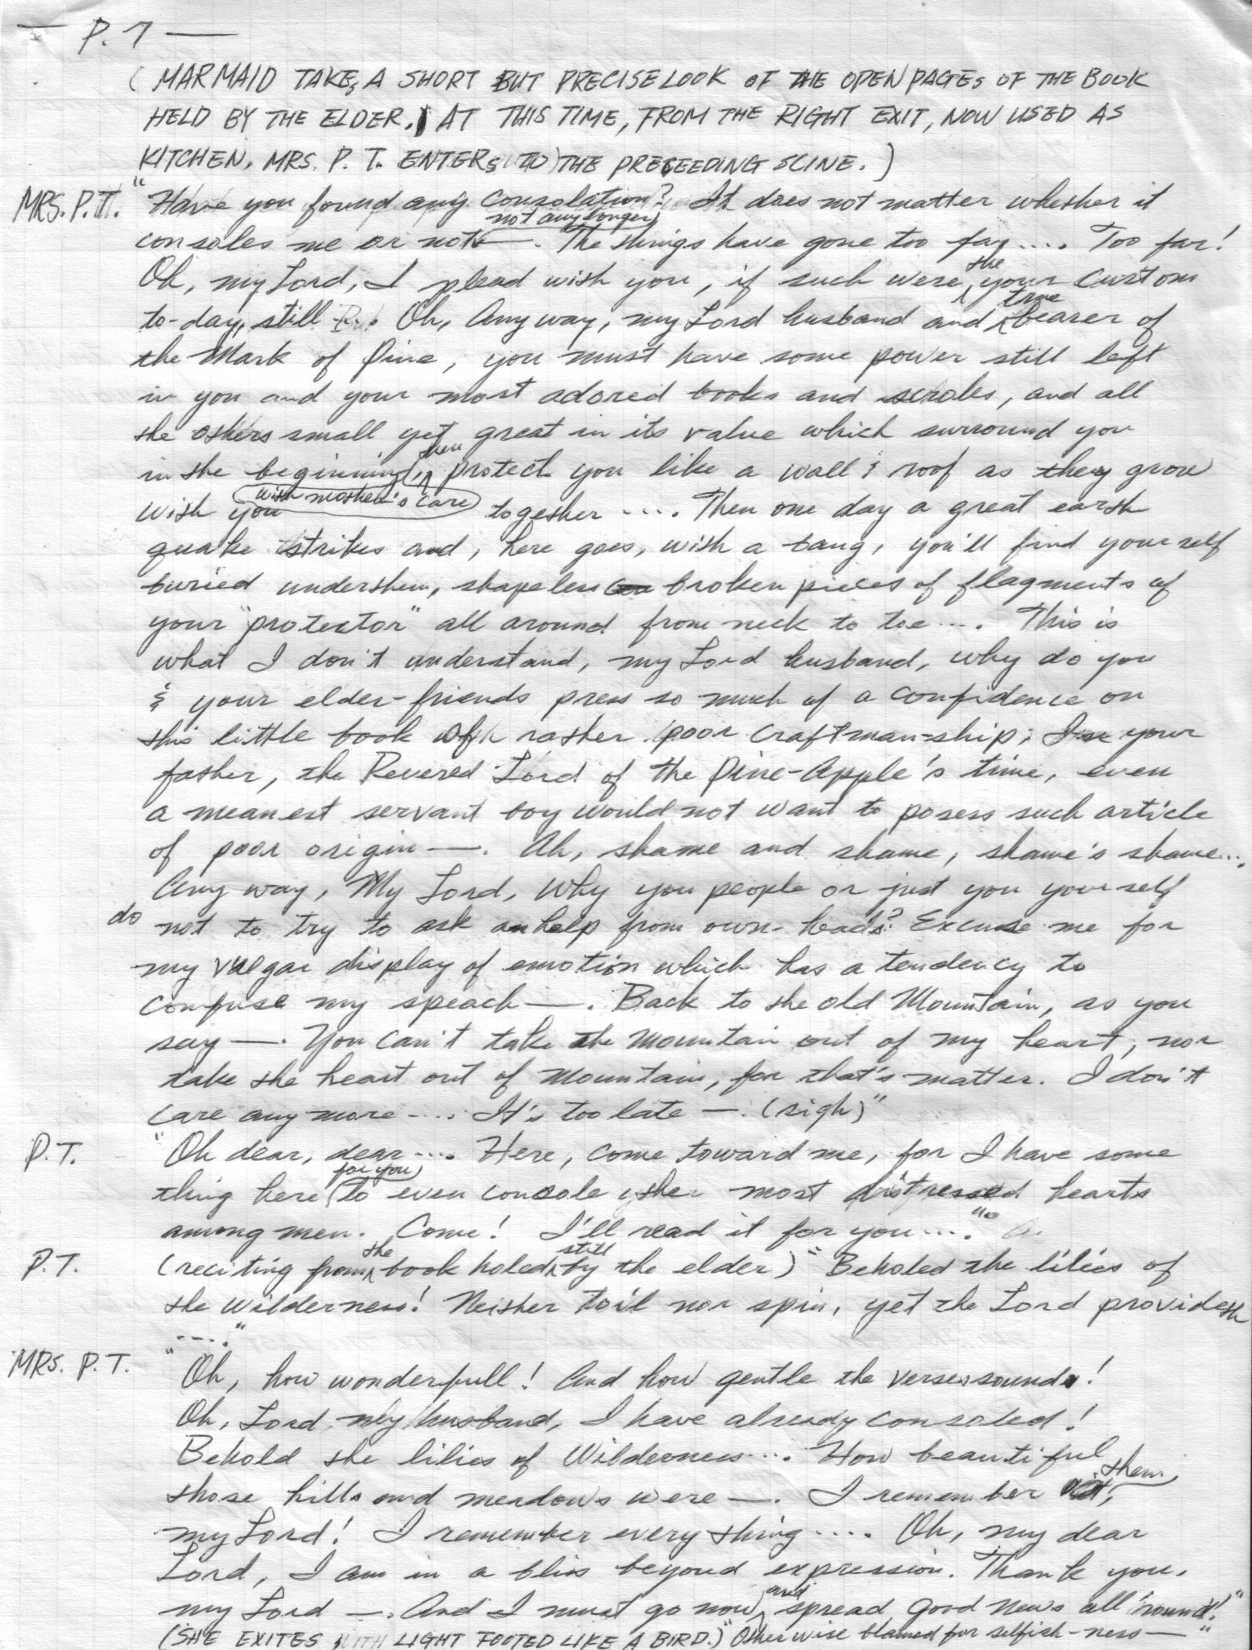 — P. 7 —
( MARMAID TAKES A SHORT BUT PRECISE LOOK OF THE OPEN PAGES OF THE BOOK
HELD BY THE ELDER. AT THIS TIME, FROM THE RIGHT EXIT, NOW USED AS
KITCHEN, MRS. P. T. ENTERS TO THE PRECEEDING SCINE. )
MRS. P. T. "Have you found any consolation? It does not matter whether it
consoles me or not not any longer —. The things have gone too far .... Too far!
Oh, my Lord, I plead with you, if such were the your custom
to-day, still . Oh, Any way, my Lord husband and true bearer of
the Mark of Pine, you must have some power still left
in you and your most adored books and scroles, and all
the others small yet great in its value which surround you
in the beginning, then protect you like a wall & roof as they grow
with you with mother's care together .... Then one day a great earth
quake strikes and, here goes, with a bang, you'll find yourself
buried under them, shapeless broken pieces of flagments of
your "protector" all around from neck to toe .... This is
what I don't understand, my Lord husband, why do you
& your elder-friends press so much of a confidence on
this little book of rather poor craftman-ship; In your
father, the Revered Lord of the Pine-Apple's time, even
a meanest servant boy would not want to posess such article
of poor origin —. Ah, shame and shame, shame's shame...
Any way, My Lord, why you people or just you yourself
do not to try to ask an help from own heads? Excuse me for
my vulgar display of emotion which has a tendency to
confuse my speach —. Back to the old Mountain, as you
say —. You can't take the mountain out of my heart, nor
take the heart out of Mountain, for that's matter. I don't
care any more .... It's too late —. (sigh)"
P.T. "Oh dear, dear .... Here, come toward me, for I have some
thing here for you to even console the most distressed hearts
among men. Come! I'll read it for you ...."
P.T. (reciting from the book holed still by the elder) "Beholed the lilies of
the wilderness! Neither toil nor spin, yet the Lord provideth
...."
MRS. P. T. "Oh, how wonderfull! And how gentle the verses sound!
Oh, Lord my husband, I have already consoled!
Behold the lilies of Wilderness .... How beautiful
those hills and meadows were —. I remember them,
my Lord! I remember every thing .... Oh, my dear
Lord, I am in a bliss beyond expression. Thank you,
my Lord —. And I must go now, and spread good news all 'round!"
(SHE EXITES WITH LIGHT FOOTED LIKE A BIRD.) "Otherwise blamed for selfish-ness —"